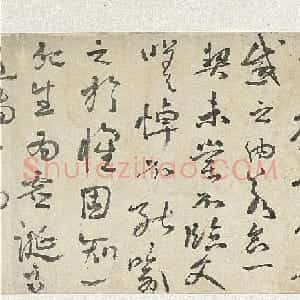 感之由若合一
契未嘗不臨文
嗟悼不能喻
之於懷固知一
死生為虛誕齊
Shufaziliao.com